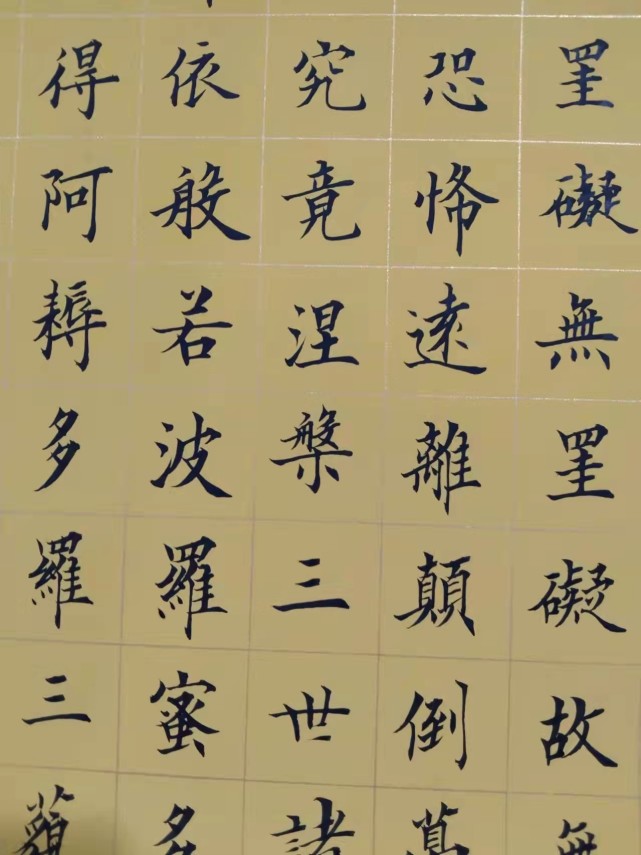 罣礙無罣礙故無
恐怖遠離顛倒夢
究竟涅槃三世諸
依般若波羅蜜多
得阿耨多羅三藐